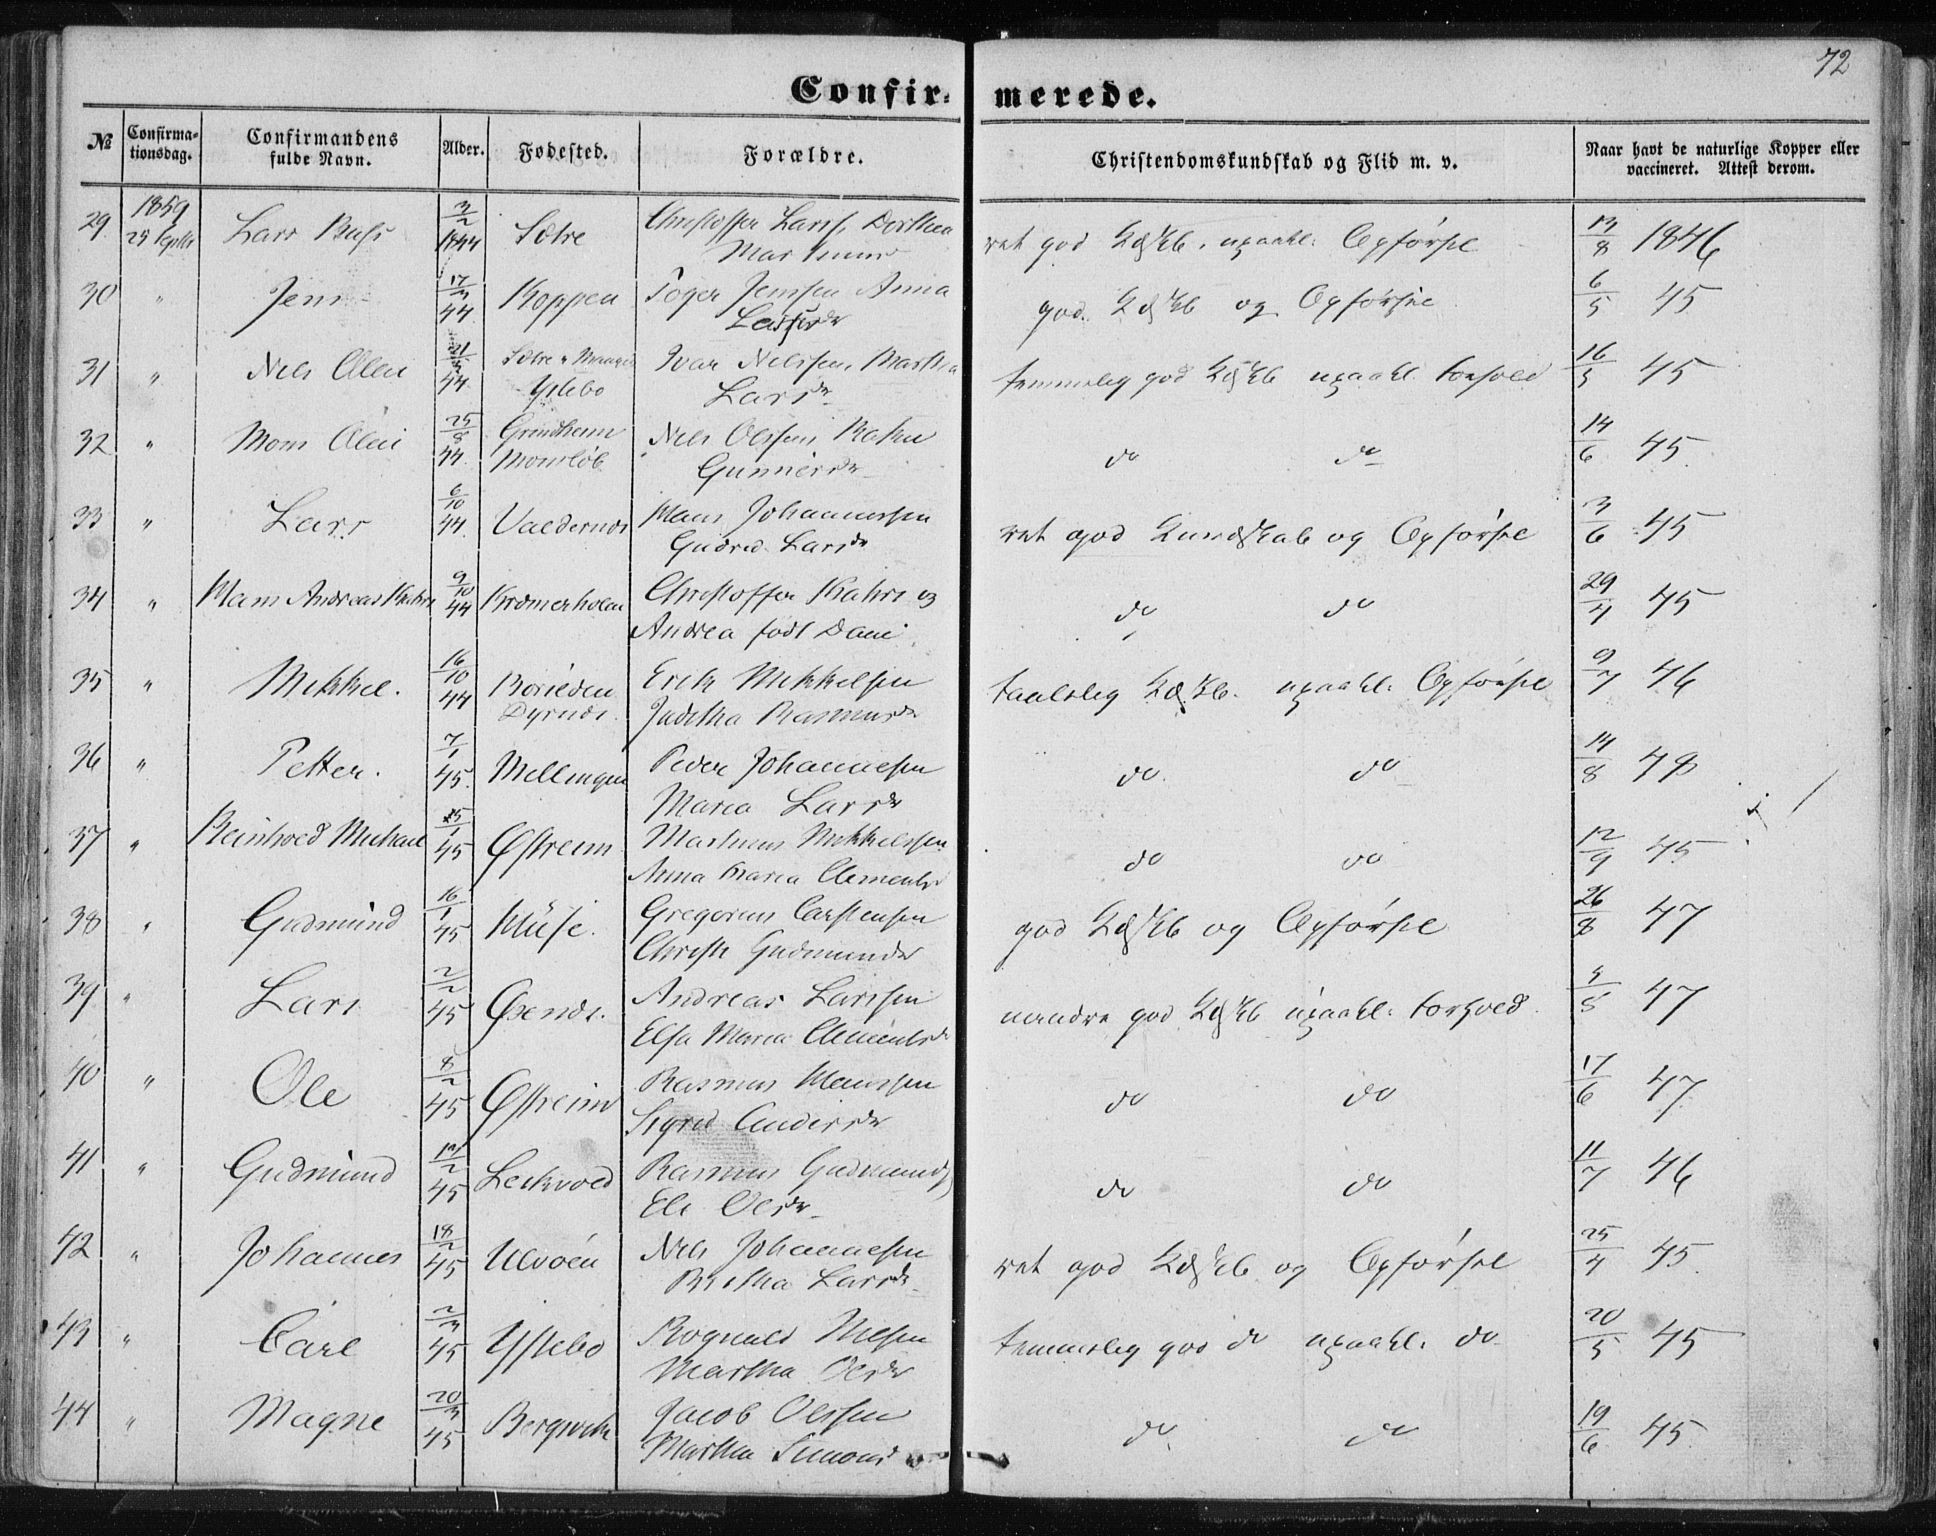 72
Confir- merede.
№ Confirma-tionsdag. Confirmandens fulde Navn. Alder. Fødested. Forældre. Christendomskundskab og Flid m. v. Naar havt de naturlige Kopper eller vaccineret. Attest derom.
29 1859 Lars 3/2 1844 Sætre Christoffer Larss. Dorthea ret god Kdskb. upaakl. Opførsel 13/8 1846
30 " Jens 17/3 44 Koppen Jenssen Anna god Kdskb og Opførsel 6/5 45
31 " Nils Olai 21/3 44 Ystebo Ivar Nilssen, Martha Larsdr temmelig god Kdskb upaakl. Forhold 16/5 45
32 " Mons Olai 25/8 44 Grindheim Monsløb Nils Olssen Gunnersdr do do 14/6 45
33 " Lars 6/10 44 Valdernæs Mans Johannessen Gudrid Larsdr ret god Kundskab og Opførsel 3/6 45
34 " Mans Andreas Kahrs 9/10 44 Kromerholm Christoffer Kahrs og Andrea født do do 29/4 45
35 " Mikkel. 16/10 44 Dyrnæs Erik Mikkelsen Juditha Rasmusdr taalelig Kdskb. upaakl. Opførsel 9/7 46
36 " Petter. 7/1 45 Mellingen Peder Johannesen Maria Larsdr do do 14/8 48
37 " Reinhold Michael 15/1 45 Østreim Martinus Mikkelssen Anna Maria Clements do do 12/9 45
38 " Gudmund 16/1 45 Gregorius Carstensen Christi Gudmundsdr god Kdskb og Opførsel 26/8 47
39 " Lars 2/2 45 Andreas Larssen Elsa Maria Clementsdr mindre god Kdskb upaakl. Forhold 47
40 " Ole 8/2 45 Østreim Rasmus Manssen Sigrid Andersdr do do 17/6 47
41 " Gudmund 45 Leirvold Rasmus Gudmunds Eli Olsdr do do 11/7 46
42 " Johannes 18/2 45 Ulvøen Nils Johannesen Larsdr ret god Kdskb og Opførsel 25/4 45
43 " Carl 2/3 45 Ystebo Rognald Nilsen Martha Olsdr temmelig god do upaakl. do 20/5 45
44 " Magne 20/3 45 Bergsvik Jacob Olssen Martha Simons do do 19/6 45